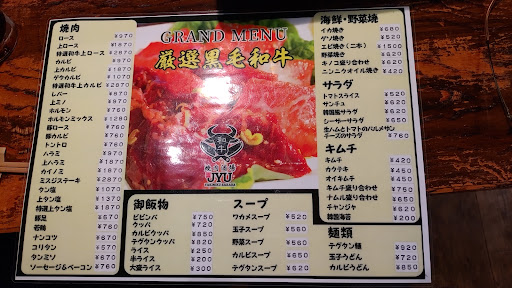 GRAND MENU
厳選黒毛和牛
焼肉
ロース ¥970
上ロース ¥1870
特選和牛上ロース ¥2870
カルビ ¥970
上カルビ ¥1870
ゲタカルビ ¥1070
特選和牛上カルビ ¥2870
レバー ¥970
上ミノ ¥970
ホルモン ¥760
ホルモンミックス ¥1280
豚ロース ¥760
豚カルビ ¥760
トントロ ¥760
ハラミ ¥970
上ハラミ ¥1870
カイノミ ¥1870
ミスジステーキ ¥2870
タン塩 ¥1070
上タン塩 ¥1370
特選上タン塩 ¥1870
豚足 ¥670
若鶏 ¥760
ナンコツ ¥690
コリタン ¥760
タンミソ ¥760
ソーセージ&ベーコン ¥760
JYU
御飯物
ビビンバ ¥750
クッパ ¥720
カルビクッパ ¥850
テグタンクッパ ¥820
ライス ¥250
半ライス ¥200
大盛ライス ¥300
スープ
ワカメスープ ¥520
玉子スープ ¥560
野菜スープ ¥560
カルビスープ ¥650
テグタンスープ ¥620
海鮮・野菜焼
イカ焼き ¥680
ゲソ焼き ¥520
エビ焼き(二本) ¥1500
野菜焼き ¥620
キノコ盛り合せ ¥620
ニンニクオイル焼き ¥420
サラダ
トマトスライス ¥520
サンチュ ¥520
韓国風サラダ ¥620
シーザーサラダ ¥650
生ハムとトマトのパルメザン
チーズのサラダ ¥760
キムチ
キムチ ¥420
カクテキ ¥450
オイキムチ ¥450
キムチ盛り合わせ ¥750
ナムル盛り合せ ¥650
チャンジャ ¥620
韓国海苔 ¥320
麺類
テグタン麺 ¥920
玉子うどん ¥720
カルビうどん ¥850